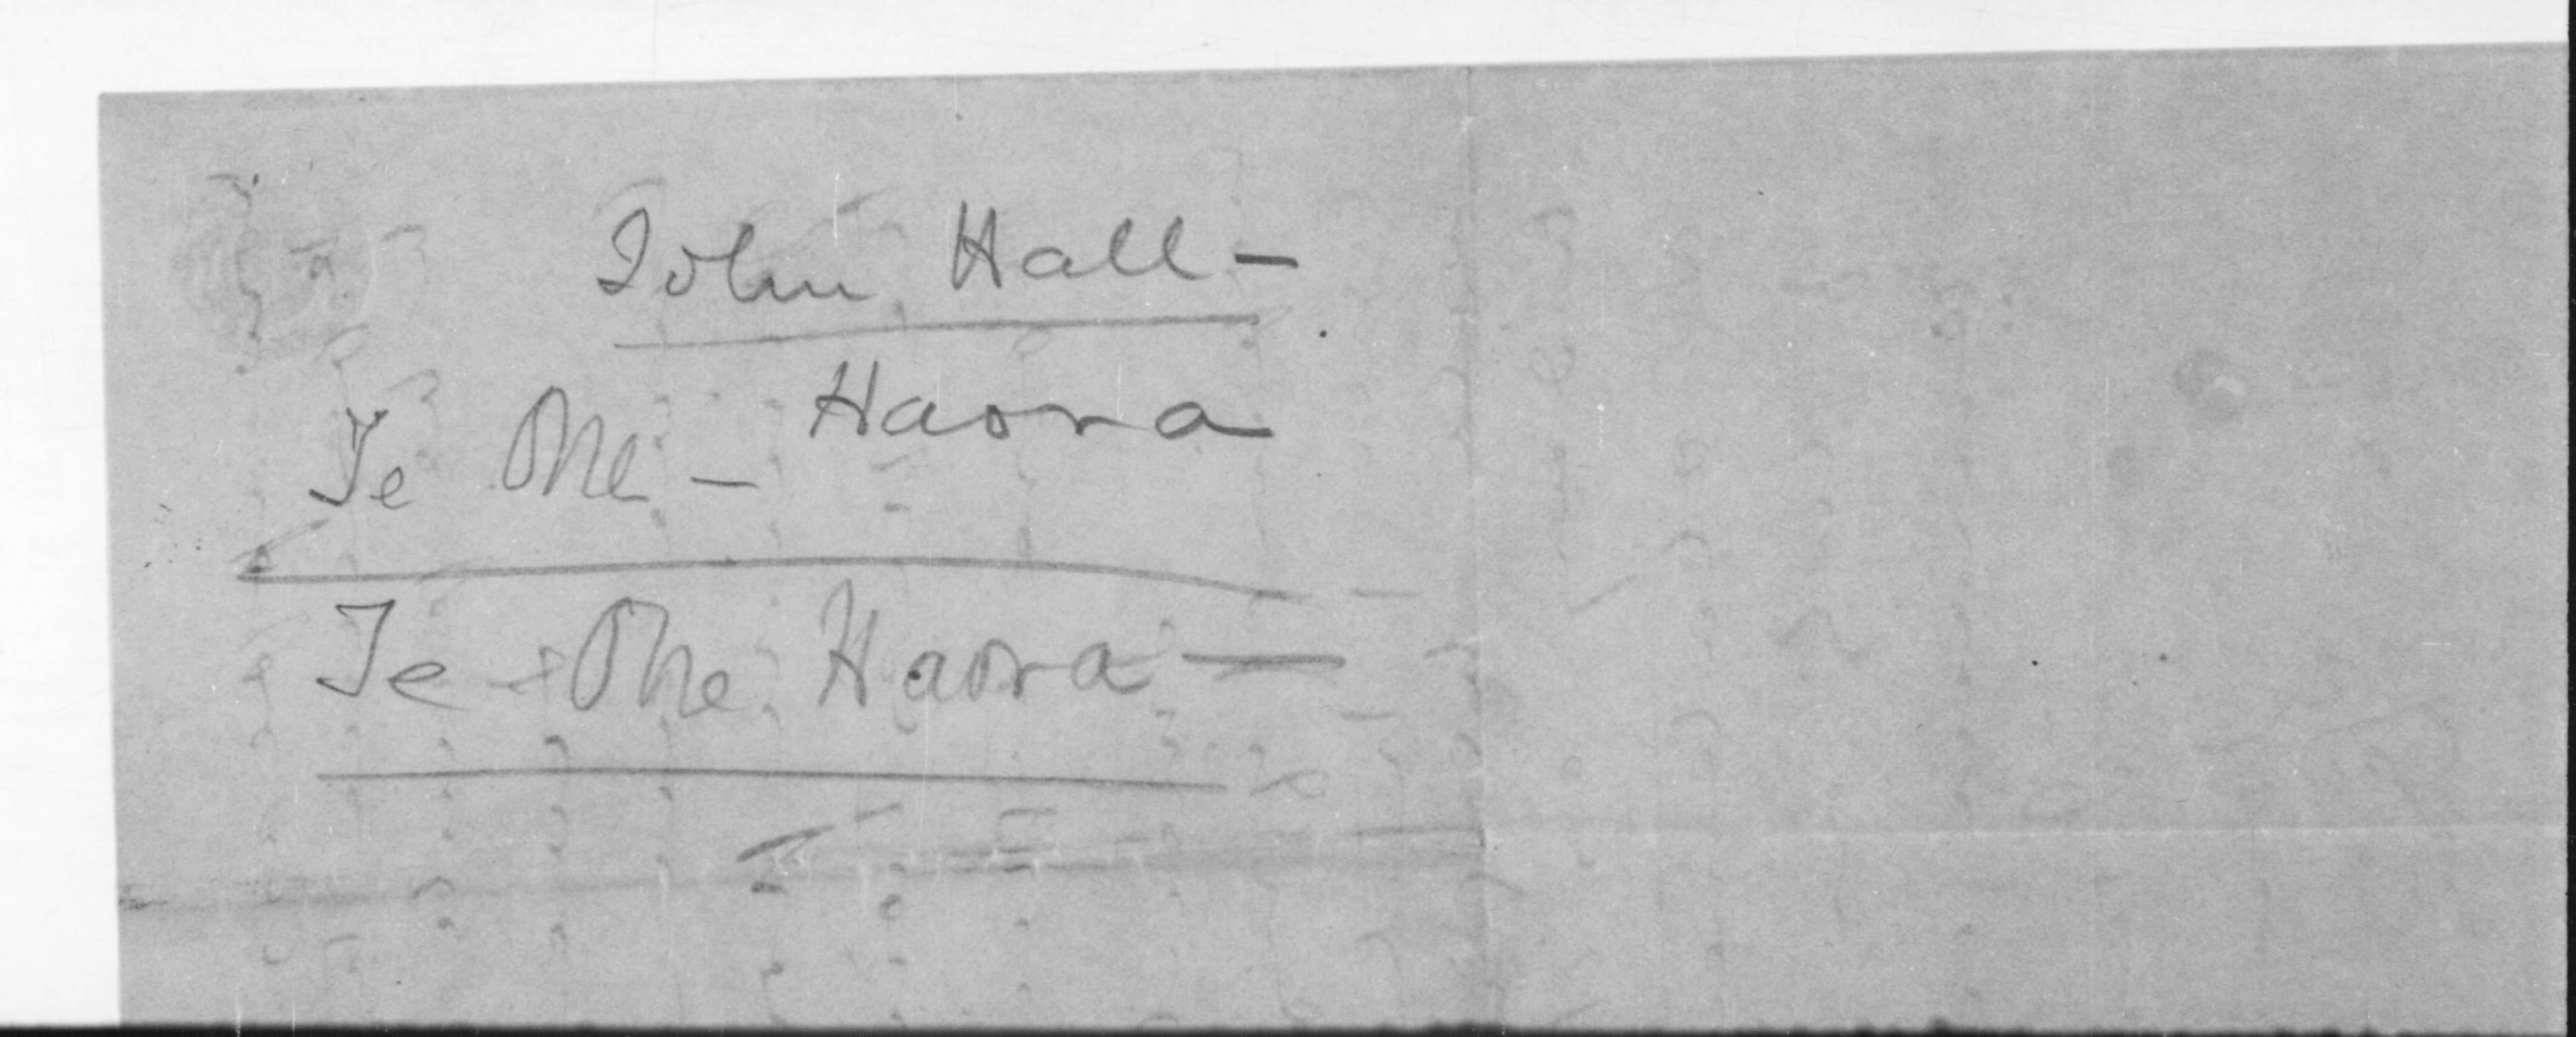 John Hall -
Te One - Haora
Te One Haora —